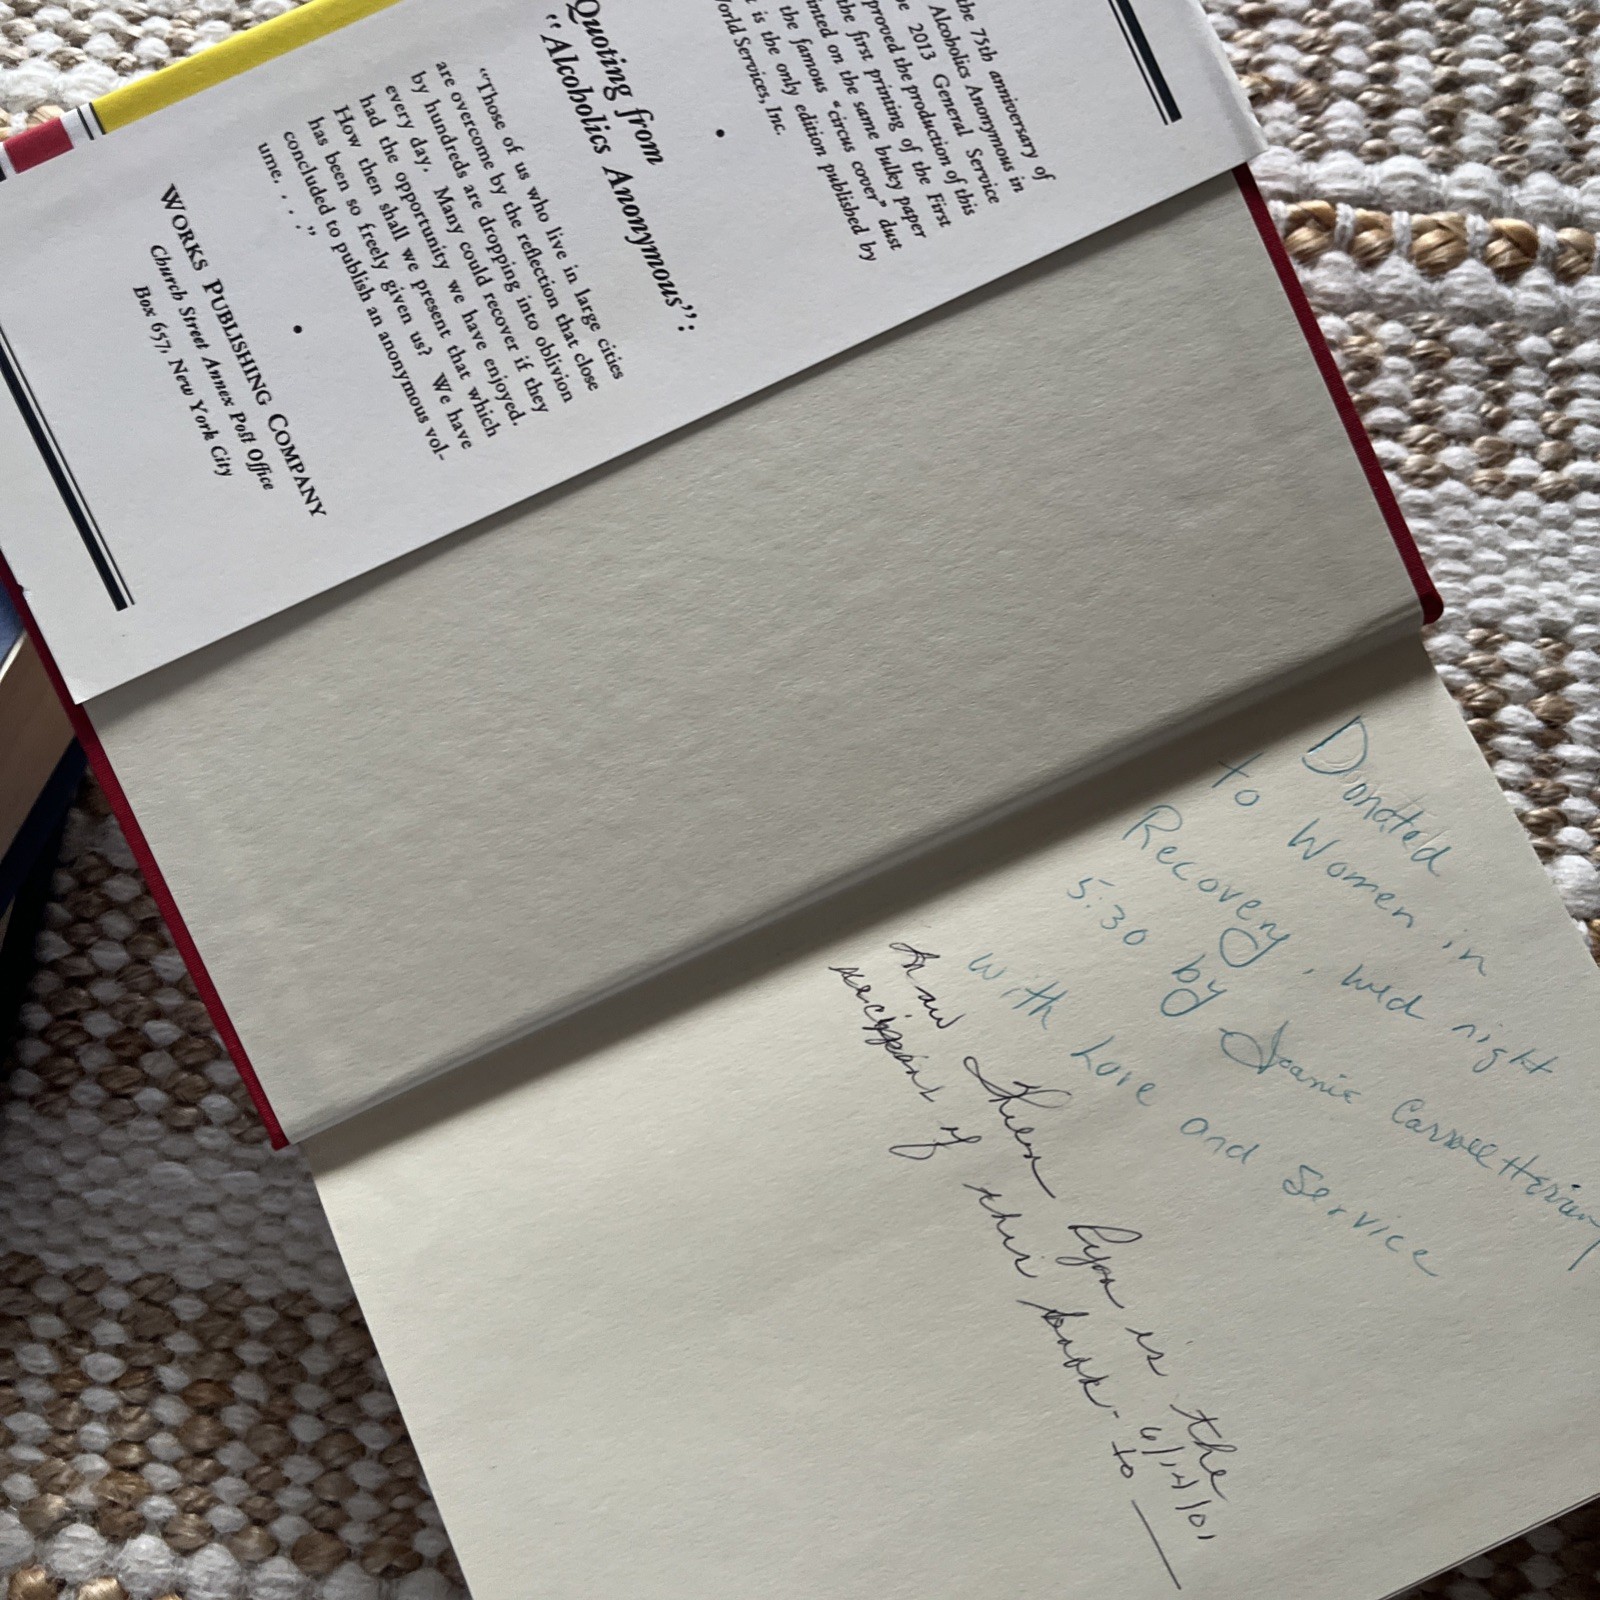 the 75th anniversary of
Alcoholics Anonymous in
2013 General Service
proved the production of this
the first printing of the First
on the same bulky paper
the famous "circus cover" dust
is the only edition published by
World Services, Inc.
•
Quoting from
"Alcoholics Anonymous":
"Those of us who live in large cities
are overcome by the reflection that close
by hundreds are dropping into oblivion
every day. Many could recover if they
had the opportunity we have enjoyed.
How then shall we present that which
has been so freely given us? We have
concluded to publish an anonymous vol-
ume. . . ."
•
WORKS PUBLISHING COMPANY
Church Street Annex Post Office
Box 657, New York City
Donated
to Women in
Recovery, wed night
5:30 by Joanie
with Love and Service
Ryan is the
recipient of this book -
to